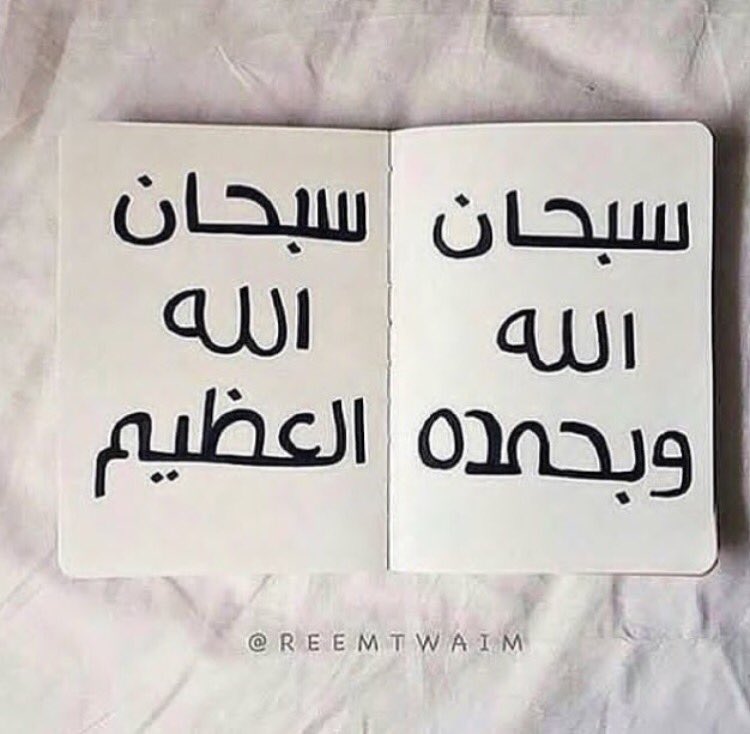 سبحان
الله
وبحمده
سبحان
الله
العظيم
@REEMTWAIM